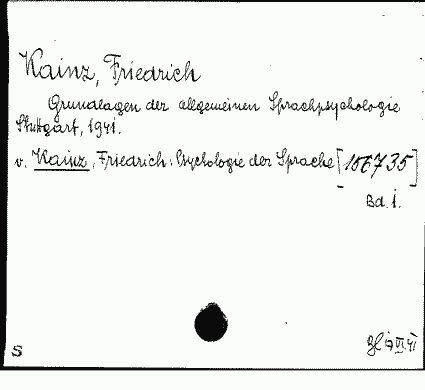 Kainz, Friedrich
Grundlagen der allgemeinen Sprachpsychologie
Stuttgart, 1941.
v. Kainz, Friedrich: Psychologie der Sprache [156735]
Bd. i.
S